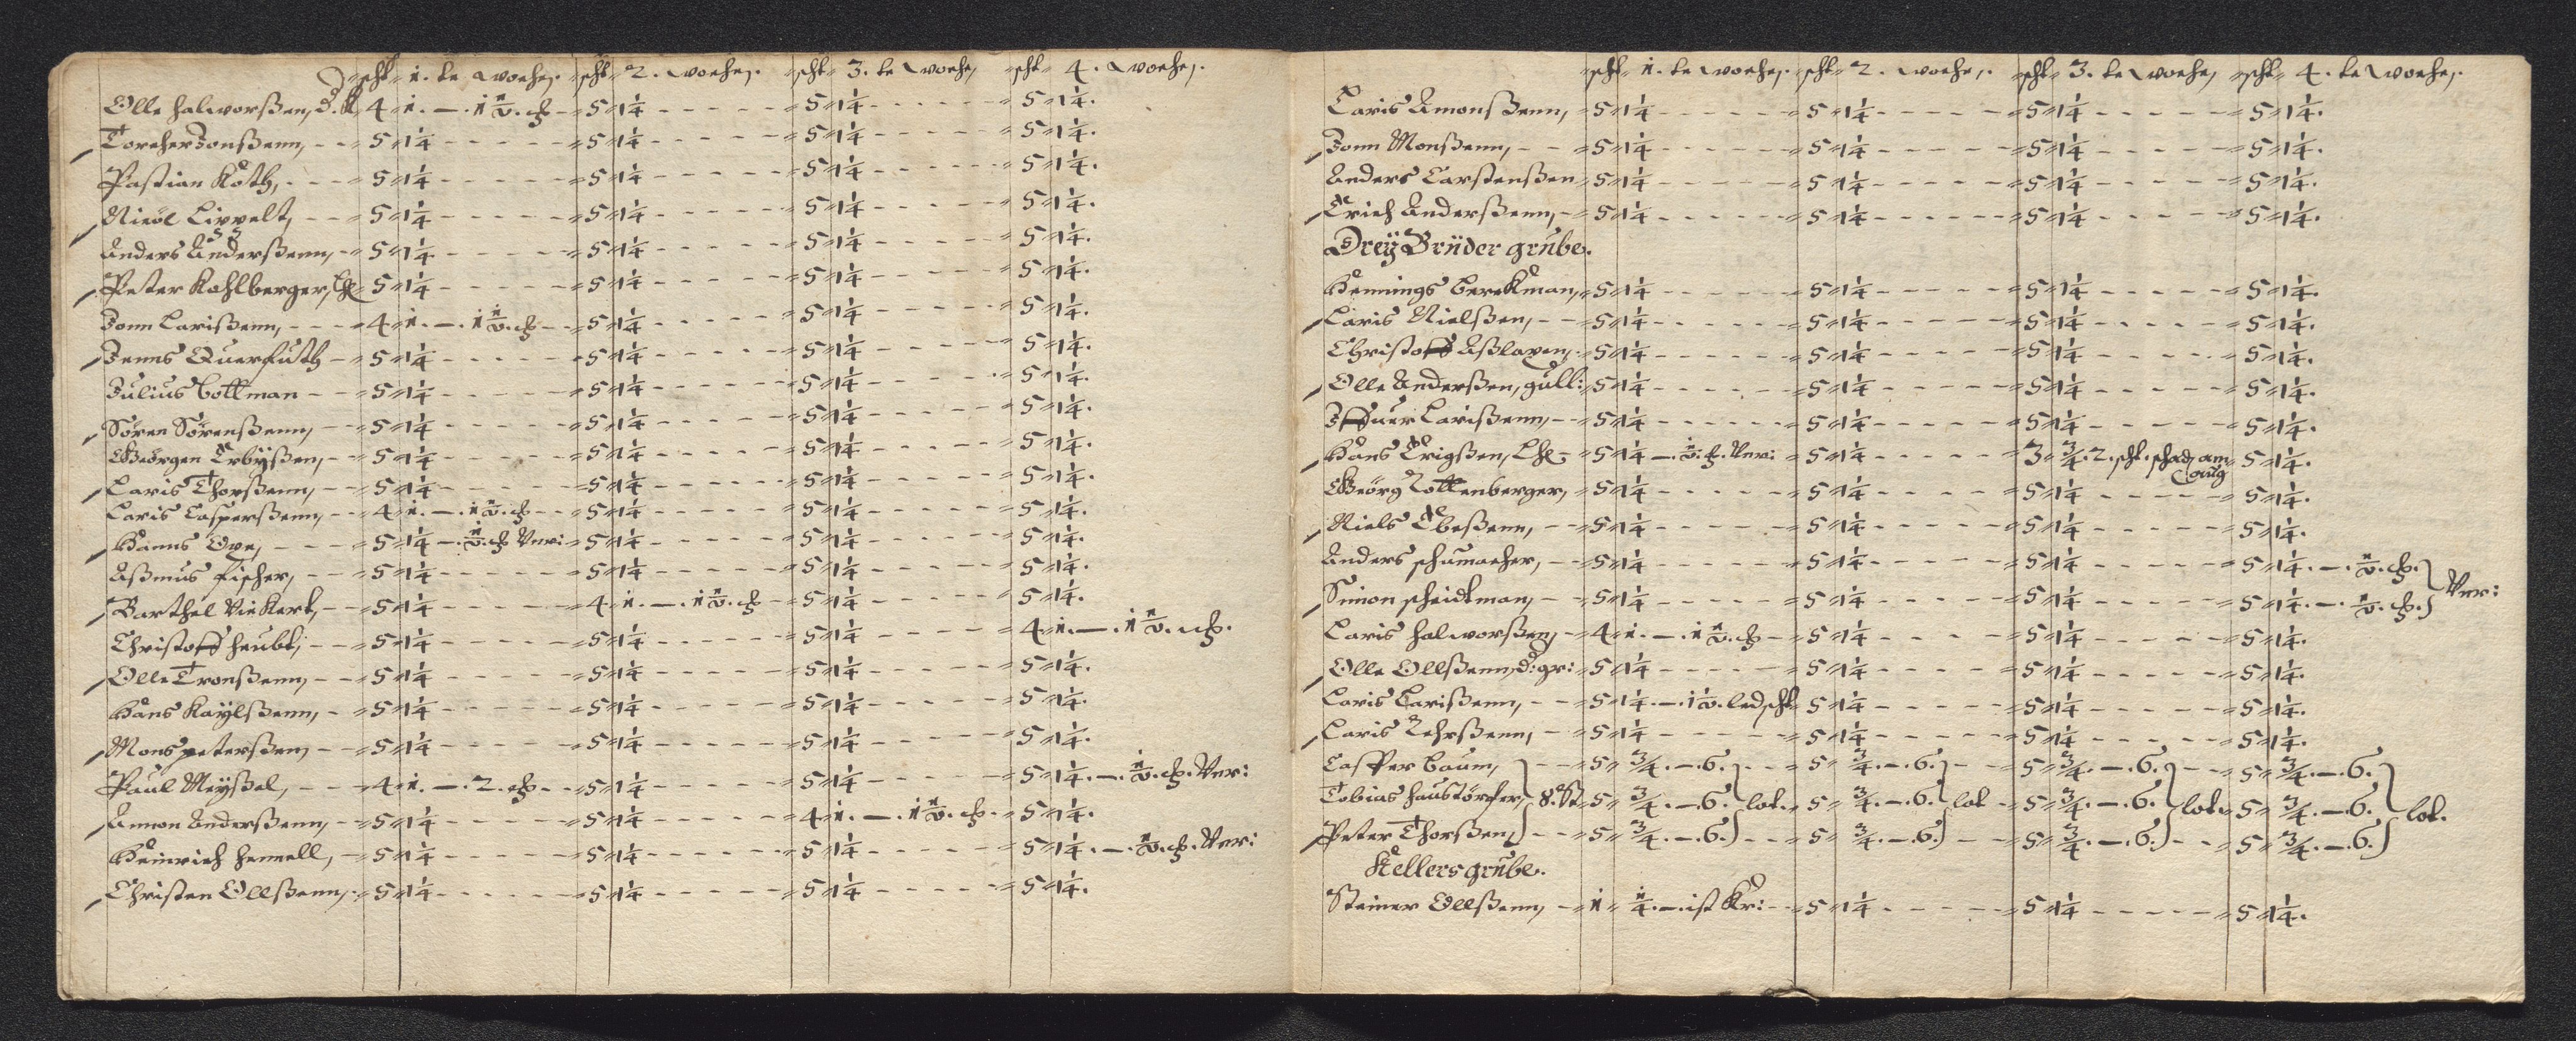 scht 1. te woche, scht 2. woche, scht 3. te woche, scht 4. woche,
Olle halworßen, d. K 4 1. — . 1 ½. sch 5 1 ¼ 5 1 ¼ 5 1 ¼.
Torcher Jonßenn, 5 1 ¼ 5 1 ¼ 5 1 ¼.
Pastian Koth, 5 1 ¼ 5 1 ¼ 5 1 ¼ 5 1 ¼.
Nicol Lippelt, 5 1 ¼ 5 1 ¼ 5 1 ¼ 5 1 ¼.
Anders Anderßenn, 5 1 ¼ 5 1 ¼ 5 1 ¼ 5 1 ¼.
Peter Kohlberger, 5 1 ¼ 5 1 ¼ 5 1 ¼ 5 1 ¼.
Jonn Larißenn, 4 1. — . 1 ½. sch 5 1 ¼ 5 1 ¼ 5 1 ¼.
Jenns Querfuth 5 1 ¼ 5 1 ¼ 5 1 ¼ 5 1 ¼.
Julius bottman 5 1 ¼ 5 1 ¼ 5 1 ¼ 5 1 ¼.
Sören Sörenßenn, 5 1 ¼ 5 1 ¼ 5 1 ¼ 5 1 ¼.
Geörgen Erbÿßen, 5 1 ¼ 5 1 ¼ 5 1 ¼ 5 1 ¼.
Laris Thorßenn, 5 1 ¼ 5 1 ¼ 5 1 ¼ 5 1 ¼.
Laris Casperßenn, 4 1. — . 1 ½. sch 5 1 ¼ 5 1 ¼ 5 1 ¼.
Hanns Oxe, 5 1 ¼ — . ½. sch Ver: 5 1 ¼ 5 1 ¼ 5 1 ¼.
Aßmus fischer, 5 1 ¼ 5 1 ¼ 5 1 ¼ 5 1 ¼.
Barthel Vickert, 5 1 ¼ 4 1. — . 1 ½. sch 5 1 ¼ 5 1 ¼.
Christoff heubt, 5 1 ¼ 5 1 ¼ 5 1 ¼ 4 1. — . 1 ½. sch.
Olle Tronßenn, 5 1 ¼ 5 1 ¼ 5 1 ¼ 5 1 ¼.
Hans Kaylßenn, 5 1 ¼ 5 1 ¼ 5 1 ¼ 5 1 ¼.
Mons peterßen, 5 1 ¼ 5 1 ¼ 5 1 ¼ 5 1 ¼.
Paul Meyßel, 4 1. — . 2. sch 5 1 ¼ 5 1 ¼ 5 1 ¼. — . ½. sch. Ver:
Amon Anderßenn, 5 1 ¼ 5 1 ¼ 4 1. — . 1 ½. sch. 5 1 ¼.
Heinrich hemell, 5 1 ¼ 5 1 ¼ 5 1 ¼ 5 1 ¼. — . ½. sch. Ver:
Christen Ollßenn, 5 1 ¼ 5 1 ¼ 5 1 ¼ 5 1 ¼.
scht 1. te woche, scht 2. woche, scht 3. te woche, scht 4. te woche,
Laris Amonßenn, 5 1 ¼ 5 1 ¼ 5 1 ¼ 5 1 ¼.
Jonn Monßenn, 5 1 ¼ 5 1 ¼ 5 1 ¼ 5 1 ¼.
Anders Carstenßen 5 1 ¼ 5 1 ¼ 5 1 ¼ 5 1 ¼.
Erich Anderßenn, 5 1 ¼ 5 1 ¼ 5 1 ¼ 5 1 ¼.
Dreÿ Brüder grube.
Hennings berckman, 5 1 ¼ 5 1 ¼ 5 1 ¼ 5 1 ¼.
Laris Nielßen, 5 1 ¼ 5 1 ¼ 5 1 ¼ 5 1 ¼.
Christoff Aßlaxen, 5 1 ¼ 5 1 ¼ 5 1 ¼ 5 1 ¼.
Olle Anderßen, gull: 5 1 ¼ 5 1 ¼ 5 1 ¼ 5 1 ¼.
Iffuer Larißenn, 5 1 ¼ 5 1 ¼ 5 1 ¼ 5 1 ¼.
Hans Erigßen, 5 1 ¼ — . ½. sch. Ver: 5 1 ¼ 3 ¾. 2. scht. schad, am aug 5 1 ¼.
Geörg Rottenberger, 5 1 ¼ 5 1 ¼ 5 1 ¼ 5 1 ¼.
Niels Ebeßenn, 5 1 ¼ 5 1 ¼ 5 1 ¼ 5 1 ¼.
Anders schumacher, 5 1 ¼ 5 1 ¼ 5 1 ¼ 5 1 ¼. — . ½. sch.
Simon scheidtman, 5 1 ¼ 5 1 ¼ 5 1 ¼ 5 1 ¼. — . ½. sch. Ver:
Laris halworßen, 4 1. — . 1 ½. sch 5 1 ¼ 5 1 ¼ 5 1 ¼.
Olle Ollßenn, d: gr: 5 1 ¼ 5 1 ¼ 5 1 ¼ 5 1 ¼.
Laris Larißenn, 5 1 ¼. — . 1 ½. led scht 5 1 ¼ 5 1 ¼ 5 1 ¼.
Laris Zehrßenn, 5 1 ¼ 5 1 ¼ 5 1 ¼ 5 1 ¼.
Casper baum, 5 ¾. — . 6. 5 ¾. — . 6. 5 ¾. — . 6. 5 ¾. — . 6.
Tobias haustörfer 8. St 5 ¾. — . 6. lot. 5 ¾. — . 6. lot 5 ¾. — . 6. lot. 5 ¾. — . 6. lot.
Peter Thorßen, 5 ¾. — . 6. 5 ¾. — . 6. 5 ¾. — . 6. 5 ¾. — . 6.
Kellers grube.
Steiner Ollßenn, 1 ¼. — . ist Kr: 5 1 ¼ 5 1 ¼ 5 1 ¼.